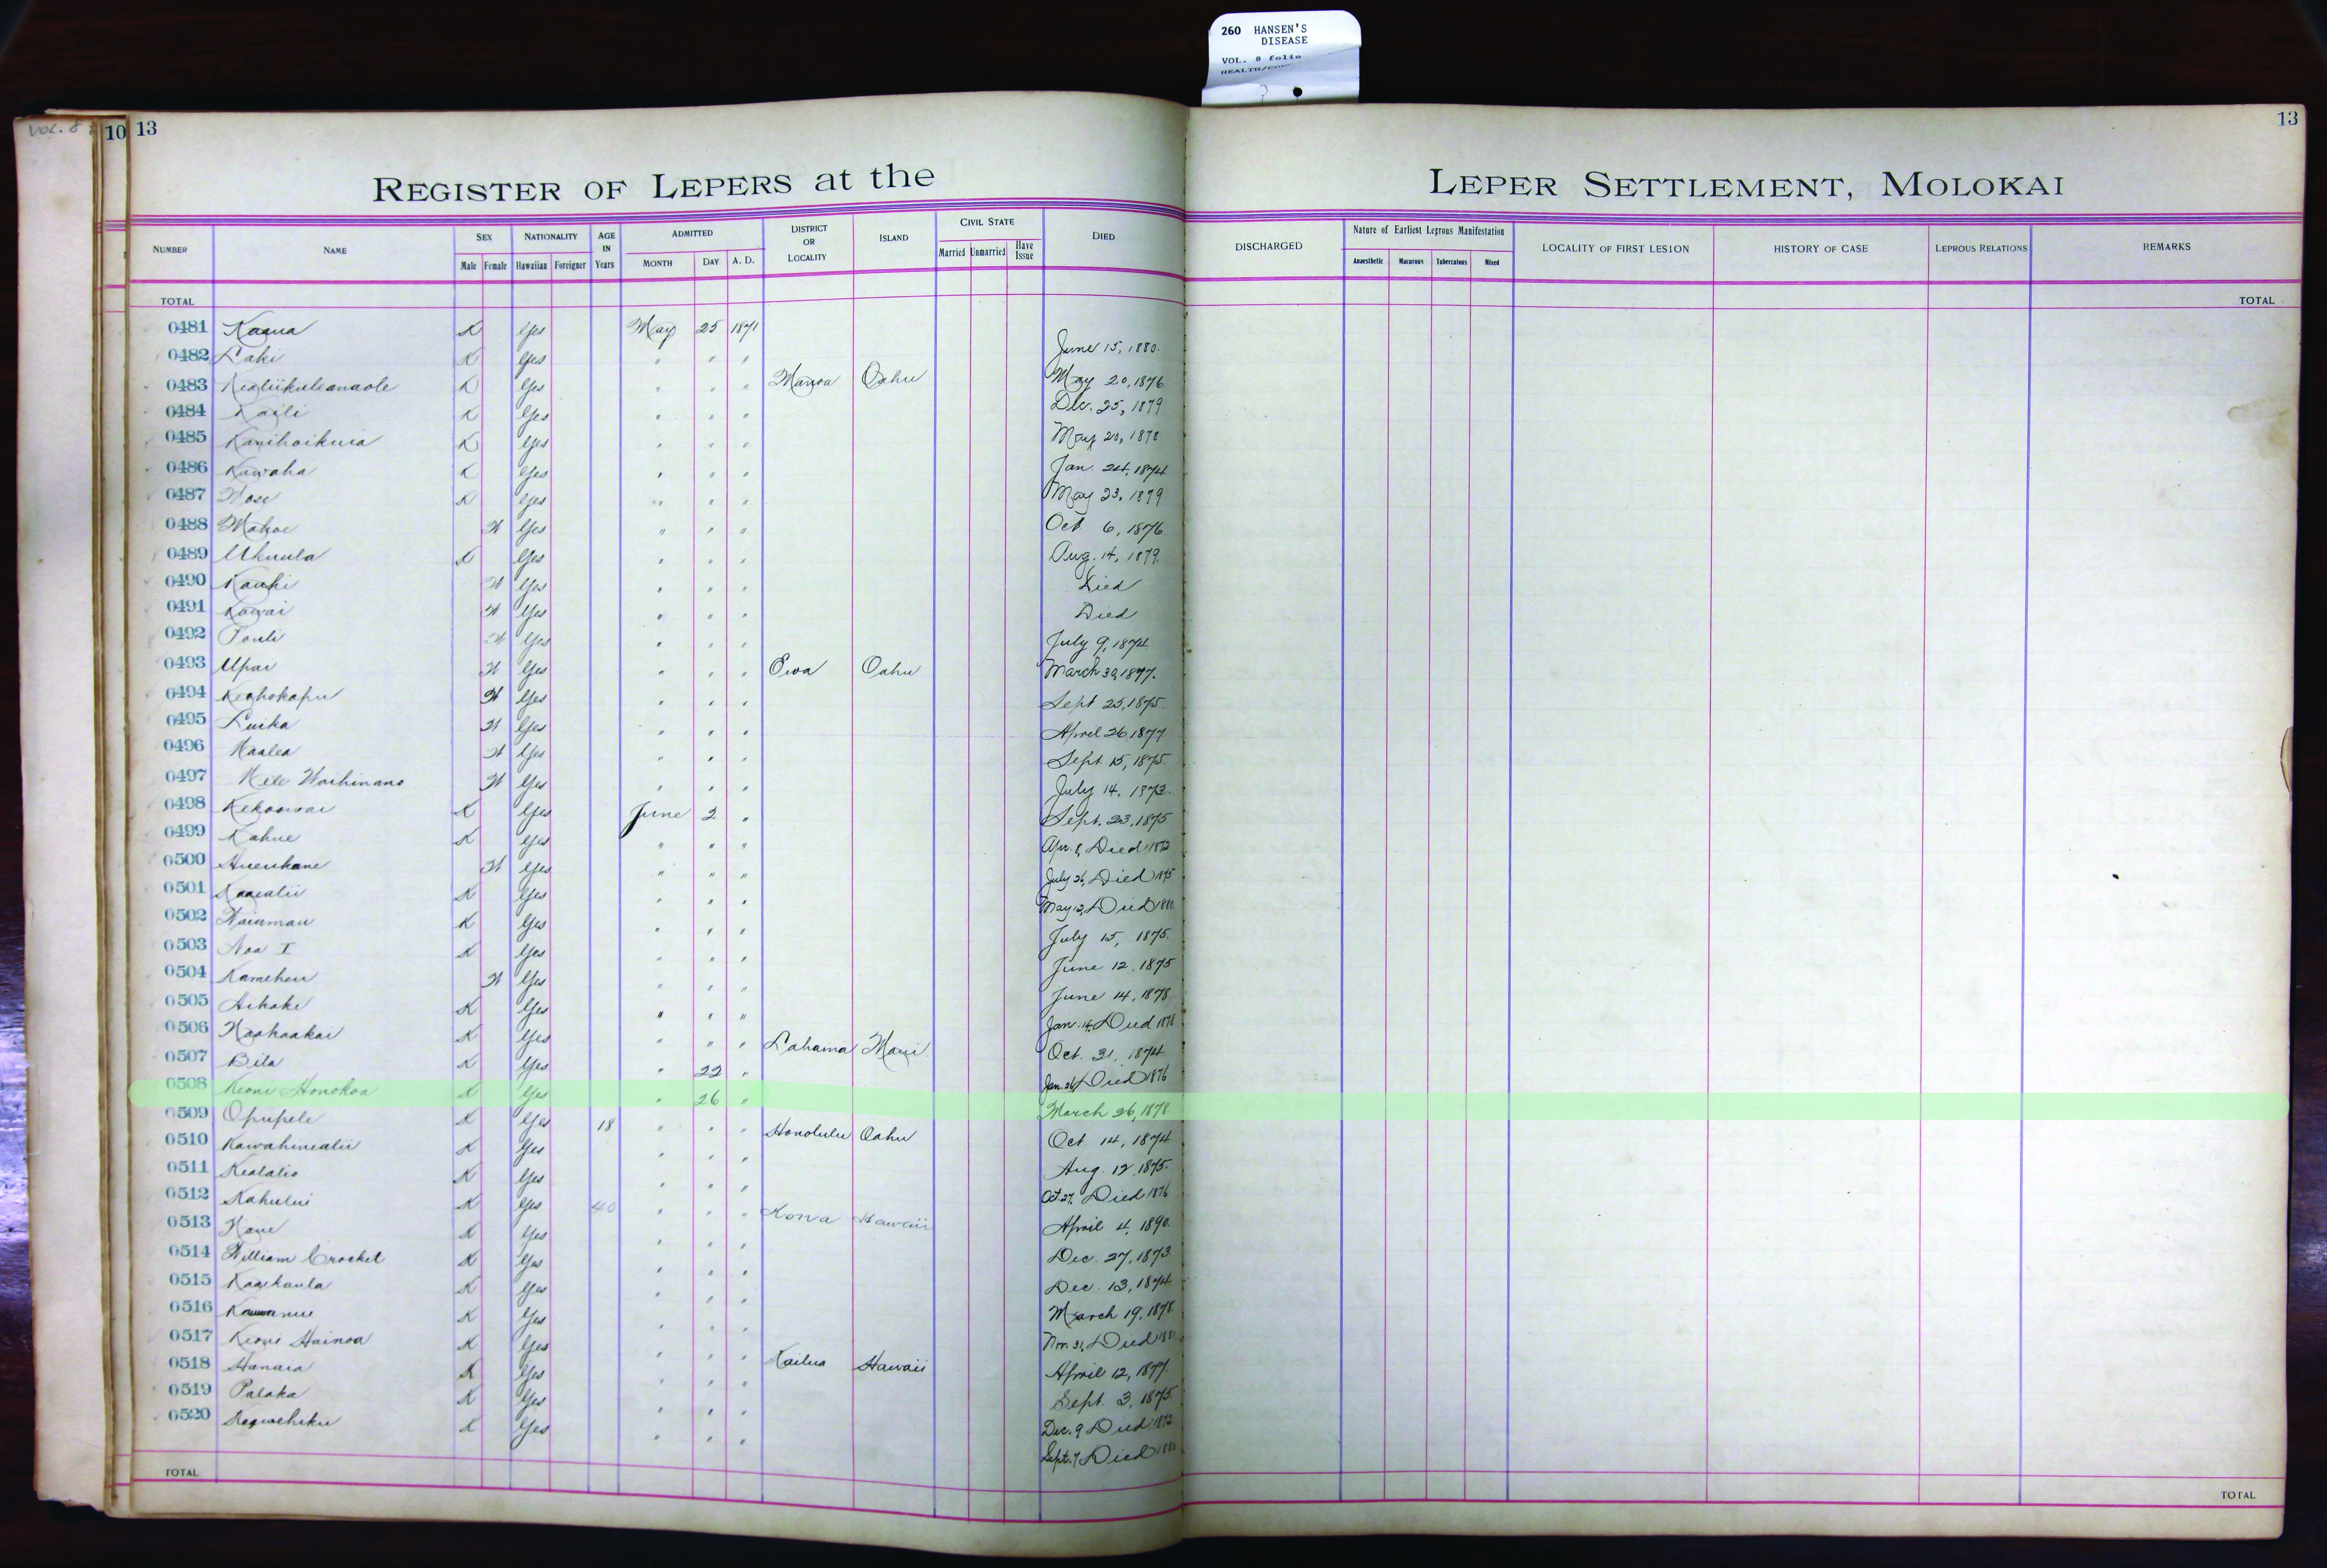 260 HANSEN'S
DISEASE
VOL. 8 folio
VOL. 8
10 13
13
REGISTER OF LEPERS at the LEPER SETTLEMENT, MOLOKAI
NUMBER NAME SEX NATIONALITY AGE IN Years ADMITTED DISTRICT OR LOCALITY ISLAND CIVIL STATE DIED DISCHARGED Nature of Earliest Leprous Manifestation LOCALITY OF FIRST LESION HISTORY OF CASE LEPROUS RELATIONS REMARKS
Male Female Hawaiian Foreigner MONTH DAY A. D. Married Unmarried Have Issue Anaesthetic Macurous Tuberculous Mixed
TOTAL TOTAL
0481 Kaaua K Yes May 25 1871
0482 Laki K Yes " " " June 15, 1880.
0483 Kealiikuleanaole K Yes " " " Manoa Oahu May 20, 1876
0484 Kaili K Yes " " " Dec. 25, 1879
0485 Kanihoikuia K Yes " " " May 20, 1878
0486 Kawaha K Yes " " " Jan. 24, 1874
0487 K Yes " " " May 23, 1879
0488 Mahoe W Yes " " " Oct 6, 1876.
0489 Ukuula K Yes " " " Aug. 14, 1879.
0490 Kauhi W Yes " " " Died
0491 Kawai W Yes " " " Died
0492 Pouli W Yes " " " July 9, 1874
0493 Upai W Yes " " " Ewa Oahu March 30, 1877.
0494 Keohokapu W Yes " " " Sept 25, 1875.
0495 Luika W Yes " " " April 26 1877
0496 Haalea W Yes " " " Sept. 15, 1875.
0497 Mele Waihinano W Yes " " " July 14, 1873.
0498 Kekoowai K Yes June 2 " Sept. 23, 1875
0499 Kahue K Yes " " " Apr. 8, Died 1872
0500 Hueukane W Yes " " " July 26, Died 1875
0501 Kaaealii K Yes " " " May 12, Died 1880
0502 Waiamau K Yes " " " July 15, 1875.
0503 Noa I K Yes " " " June 12, 1875
0504 Kameheu W Yes " " " June 14, 1878
0505 Aikake K Yes " " " Jan. 14, Died 1878
0506 Naohaakai K Yes " " " Lahaina Maui Oct. 31, 1874
0507 Bila K Yes " 22 " Jan. 26, Died 1876
0508 Keoni Honokoa K Yes " 26 " March 26, 1878
0509 Opupele K Yes 18 " " " Honolulu Oahu Oct 14, 1874
0510 Kawahinealii K Yes " " " Aug. 12, 1875.
0511 Kealalio K Yes " " " Oct. 27, Died 1876
0512 Kahului K Yes 40 " " " Kona Hawaii April 4, 1890.
0513 K Yes " " " Dec. 27, 1873
0514 William Crocket K Yes " " " Dec. 13, 1874
0515 Kaaikaula K Yes " " " March 19, 1878
0516 K Yes " " " Nov. 31, Died
0517 Keoni Hainoa K Yes " " " Kailua Hawaii April 12, 1877.
0518 Hanaia K Yes " " " Sept. 3, 1875.
0519 Palaka K Yes " " " Dec. 9 Died 1872
0520 K Yes " " " Sept. 7, Died
TOTAL TOTAL